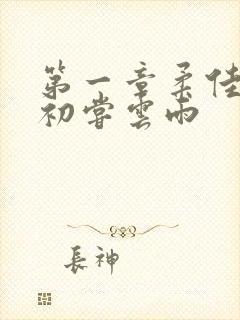 第一章柔佳
初嘗雲雨
長神